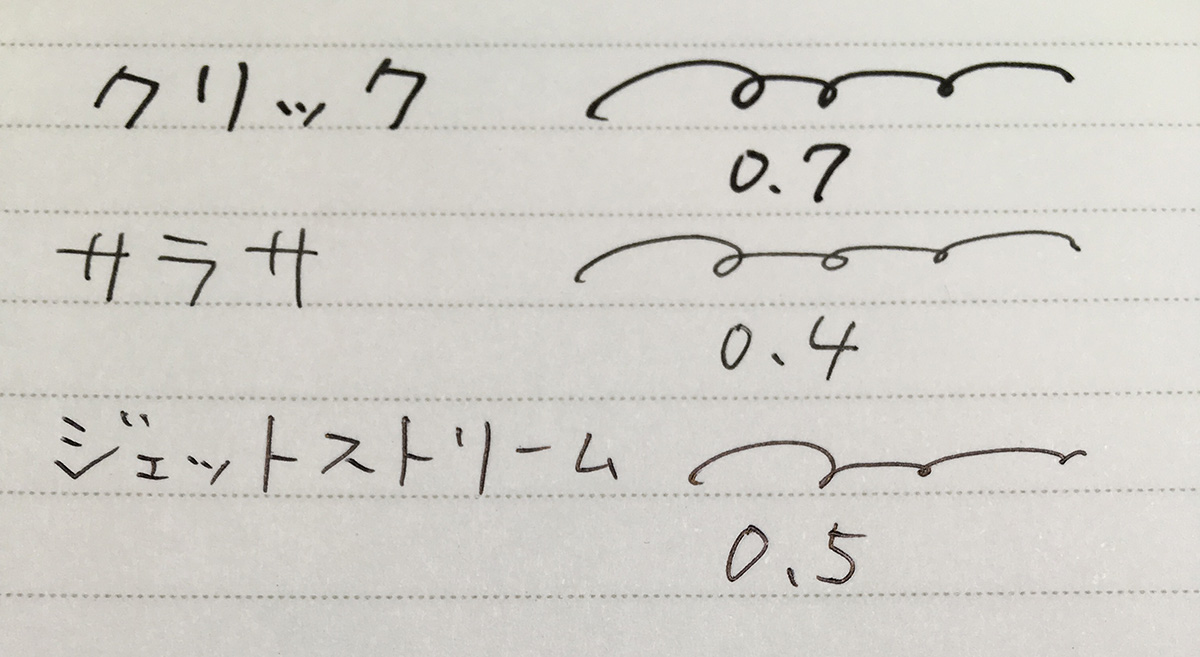 クリック
0.7
サラサ
0.4
ジェットストリーム
0.5